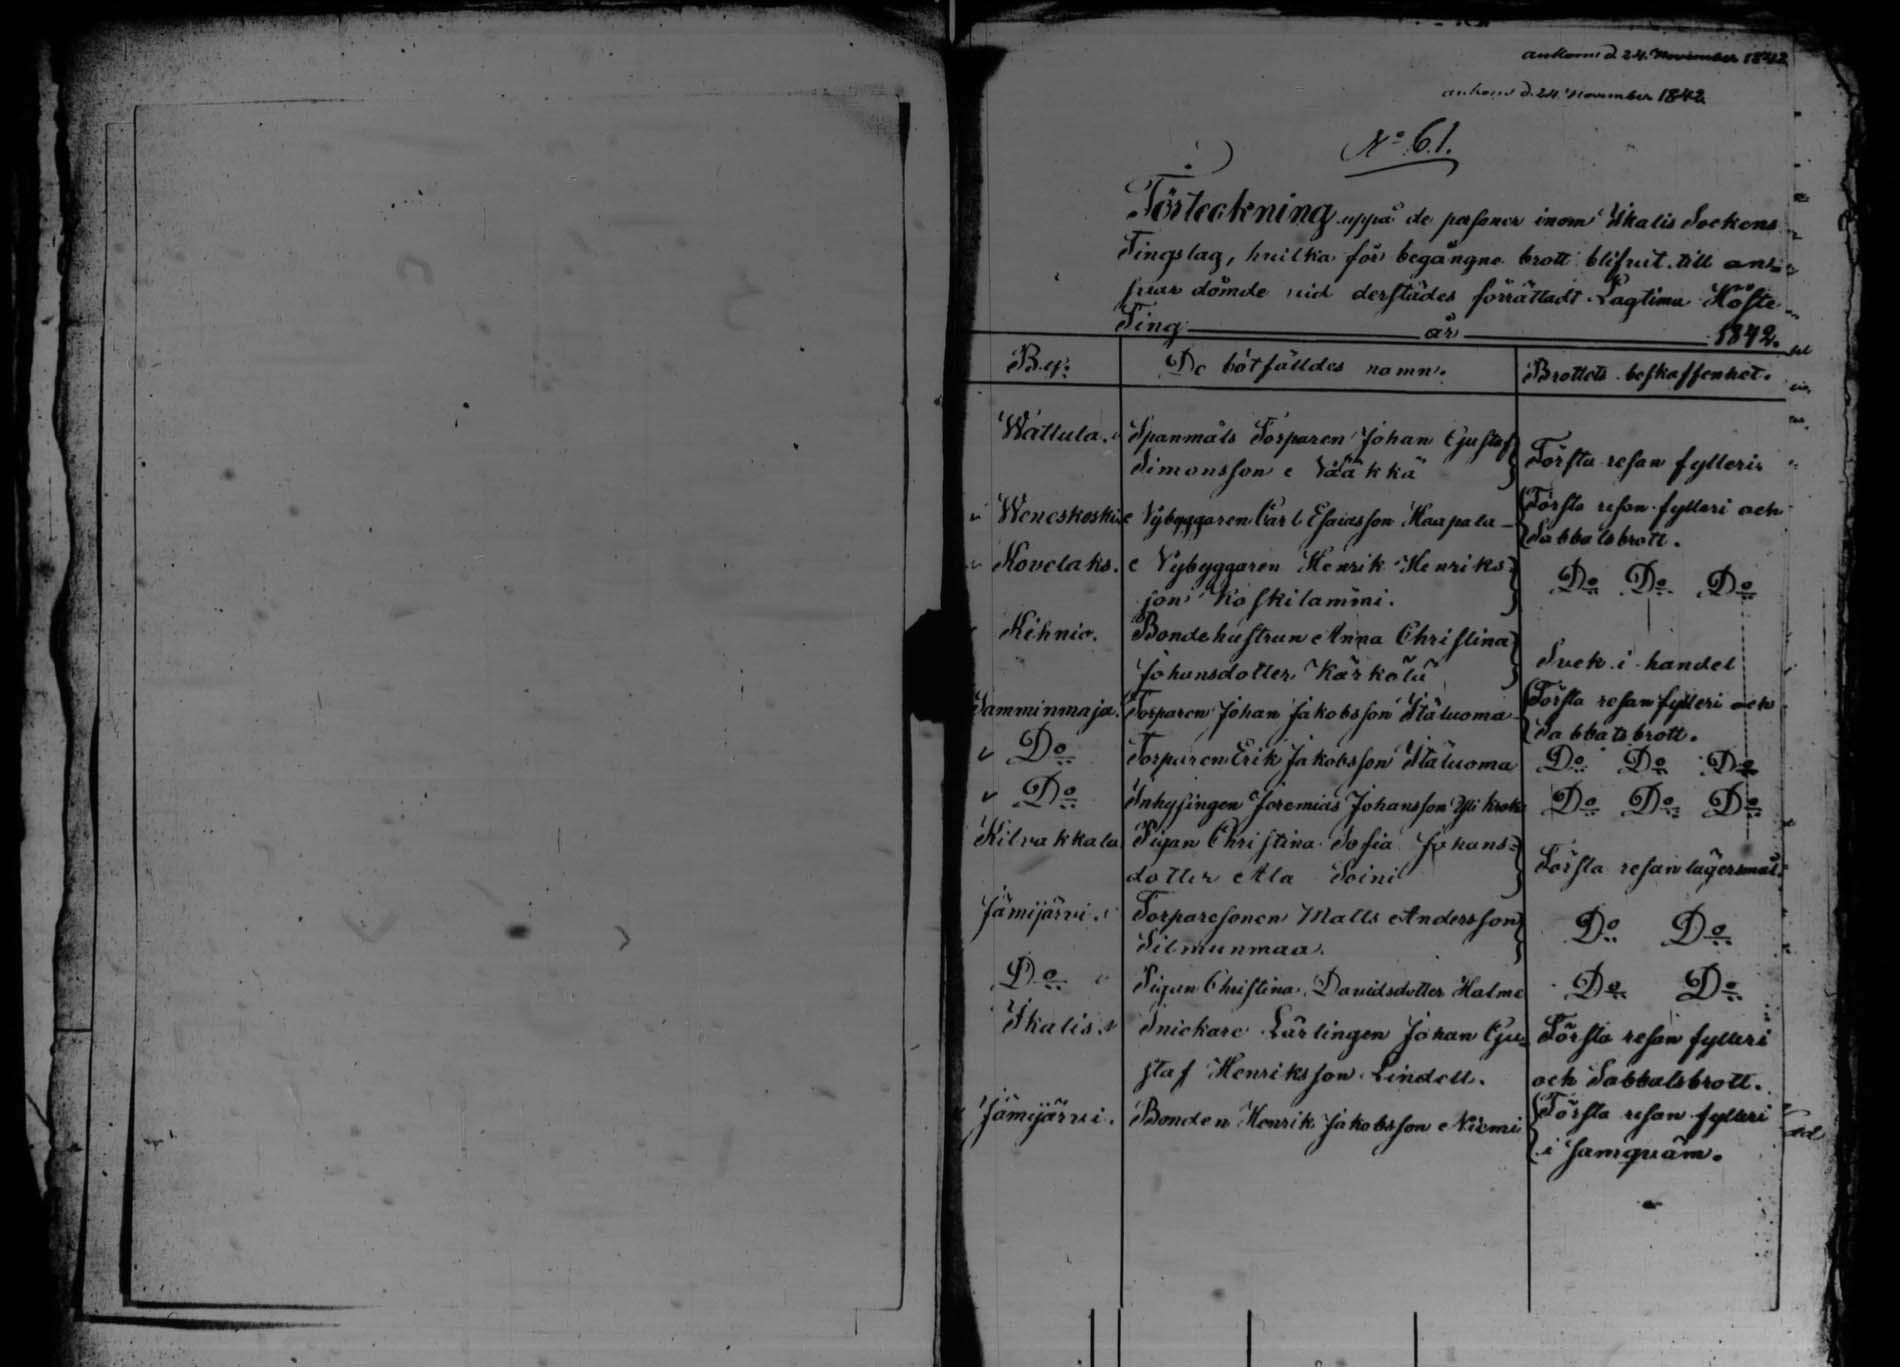 ankom d. 24. November 1842
ankom d. 24. November 1842
No 61.
Förteckning uppå de personer inom Ikalis Sockens
Tingslag, hvilka för begångne brott blifvit till an-
svar dömde vid derstädes förrättadt Lagtima Höste
Ting år 1842.
By: De bötfälldes namn. Brottets beskaffenhet.
Wattula. Spanmåls Torparen Johan Gustaf
Simonsson Vääkkä Första resan fylleri
Weneskoski Nybyggaren Carl Esaiasson Haapala Första resan fylleri och
Sabbatsbrott.
Kovelaks. Nybyggaren Henrik Henriks- Do Do Do
son Koskilammi.
Kihniö. Bondehustrun Anna Christina
Johansdotter Kärkölä Svek i handel
Samminmaja. Torparen Johan Jakobsson Itäluoma Första resan fylleri och
Sabbatsbrott.
Do Torparen Erik Jakobsson Itäluoma Do Do Do
Do Inhysingen Jeremias Johansson Yli Do Do Do
Kilvakkala Pigan Christina Sofia Johans-
dotter Ala Soini Första resan lägersmål.
Jämijärvi. Torparesonen Matts Andersson Do Do
Silmunmaa.
Do Pigan Christina Davidsdotter Halme Do Do
Ikalis. Snickare Lärlingen Johan Gu- Första resan fylleri
staf Henriksson Lindell. och Sabbatsbrott.
Jämijärvi. Bonden Henrik Jakobsson Niemi Första resan fylleri
i samqväm.